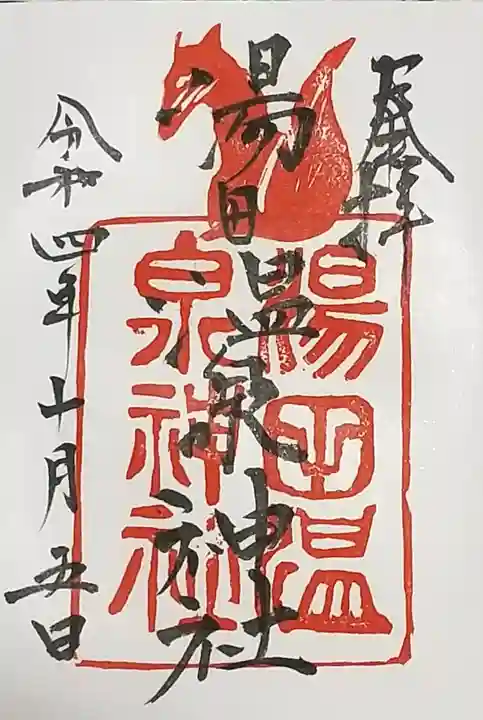 奉拝
湯田温泉神社
湯田温
泉神社
令和四年十月五日